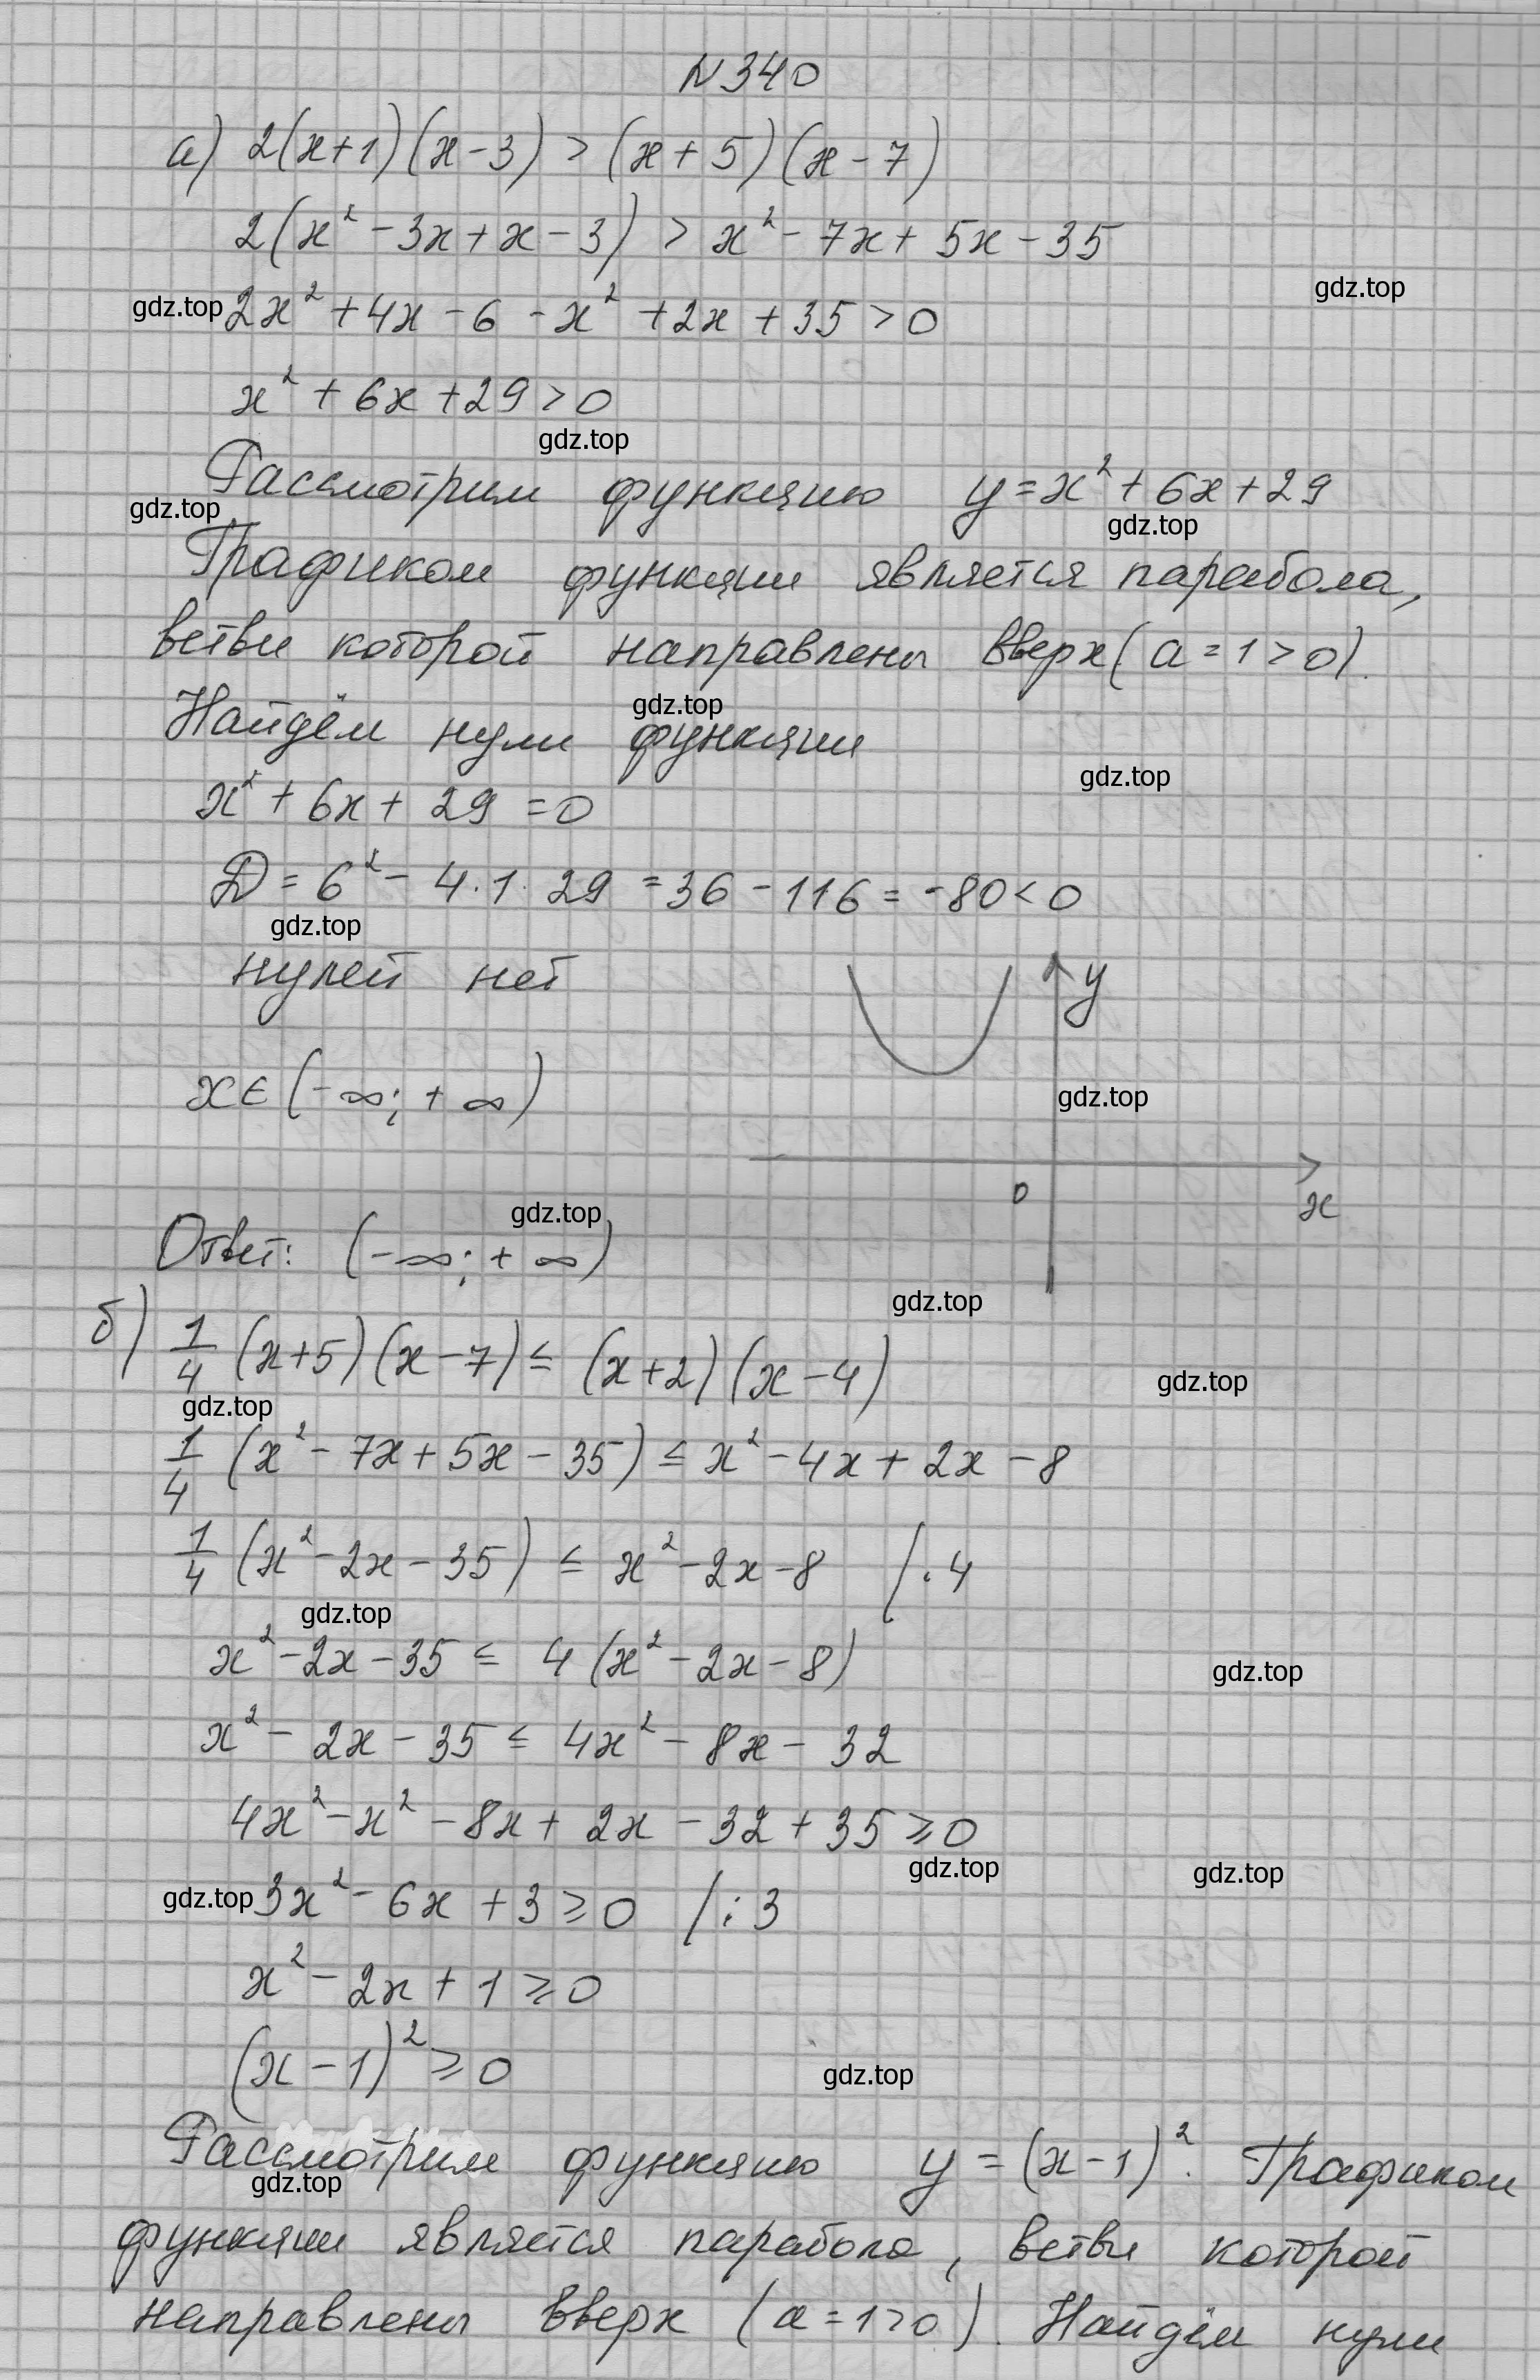 N340
а) 2(x+1)(x-3) > (x+5)(x-7)
2(x² - 3x + x - 3) > x² - 7x + 5x - 35
gdz.top
gdz.top 2x² + 4x - 6 - x² + 2x + 35 > 0
x² + 6x + 29 > 0
gdz.top
Рассмотрим функцию y = x² + 6x + 29
gdz.top gdz.top
Графиком функции является парабола,
ветви которой направлены вверх (a = 1 > 0).
gdz.top
Найдём нули функции
gdz.top
x² + 6x + 29 = 0
D = 6² - 4·1·29 = 36 - 116 = -80 < 0
gdz.top
нулей нет
y
x ∈ (-∞; +∞)
gdz.top
0 x
gdz.top
Ответ: (-∞; +∞)
gdz.top
б) 1/4 (x+5)(x-7) ≤ (x+2)(x-4)
gdz.top
gdz.top
1/4 (x² - 7x + 5x - 35) ≤ x² - 4x + 2x - 8
1/4 (x² - 2x - 35) ≤ x² - 2x - 8 /·4
gdz.top
x² - 2x - 35 ≤ 4(x² - 2x - 8)
gdz.top
x² - 2x - 35 ≤ 4x² - 8x - 32
4x² - x² - 8x + 2x - 32 + 35 ≥ 0
gdz.top gdz.top
gdz.top 3x² - 6x + 3 ≥ 0 /:3
x² - 2x + 1 ≥ 0
(x - 1)² ≥ 0
gdz.top
Рассмотрим функцию y = (x-1)². Графиком
gdz.top
функции является парабола, ветви которой
направлены вверх (a = 1 > 0). Найдём нули